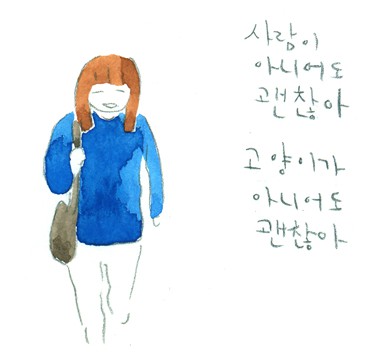 사람이
아니어도
괜찮아
고양이가
아니어도
괜찮아